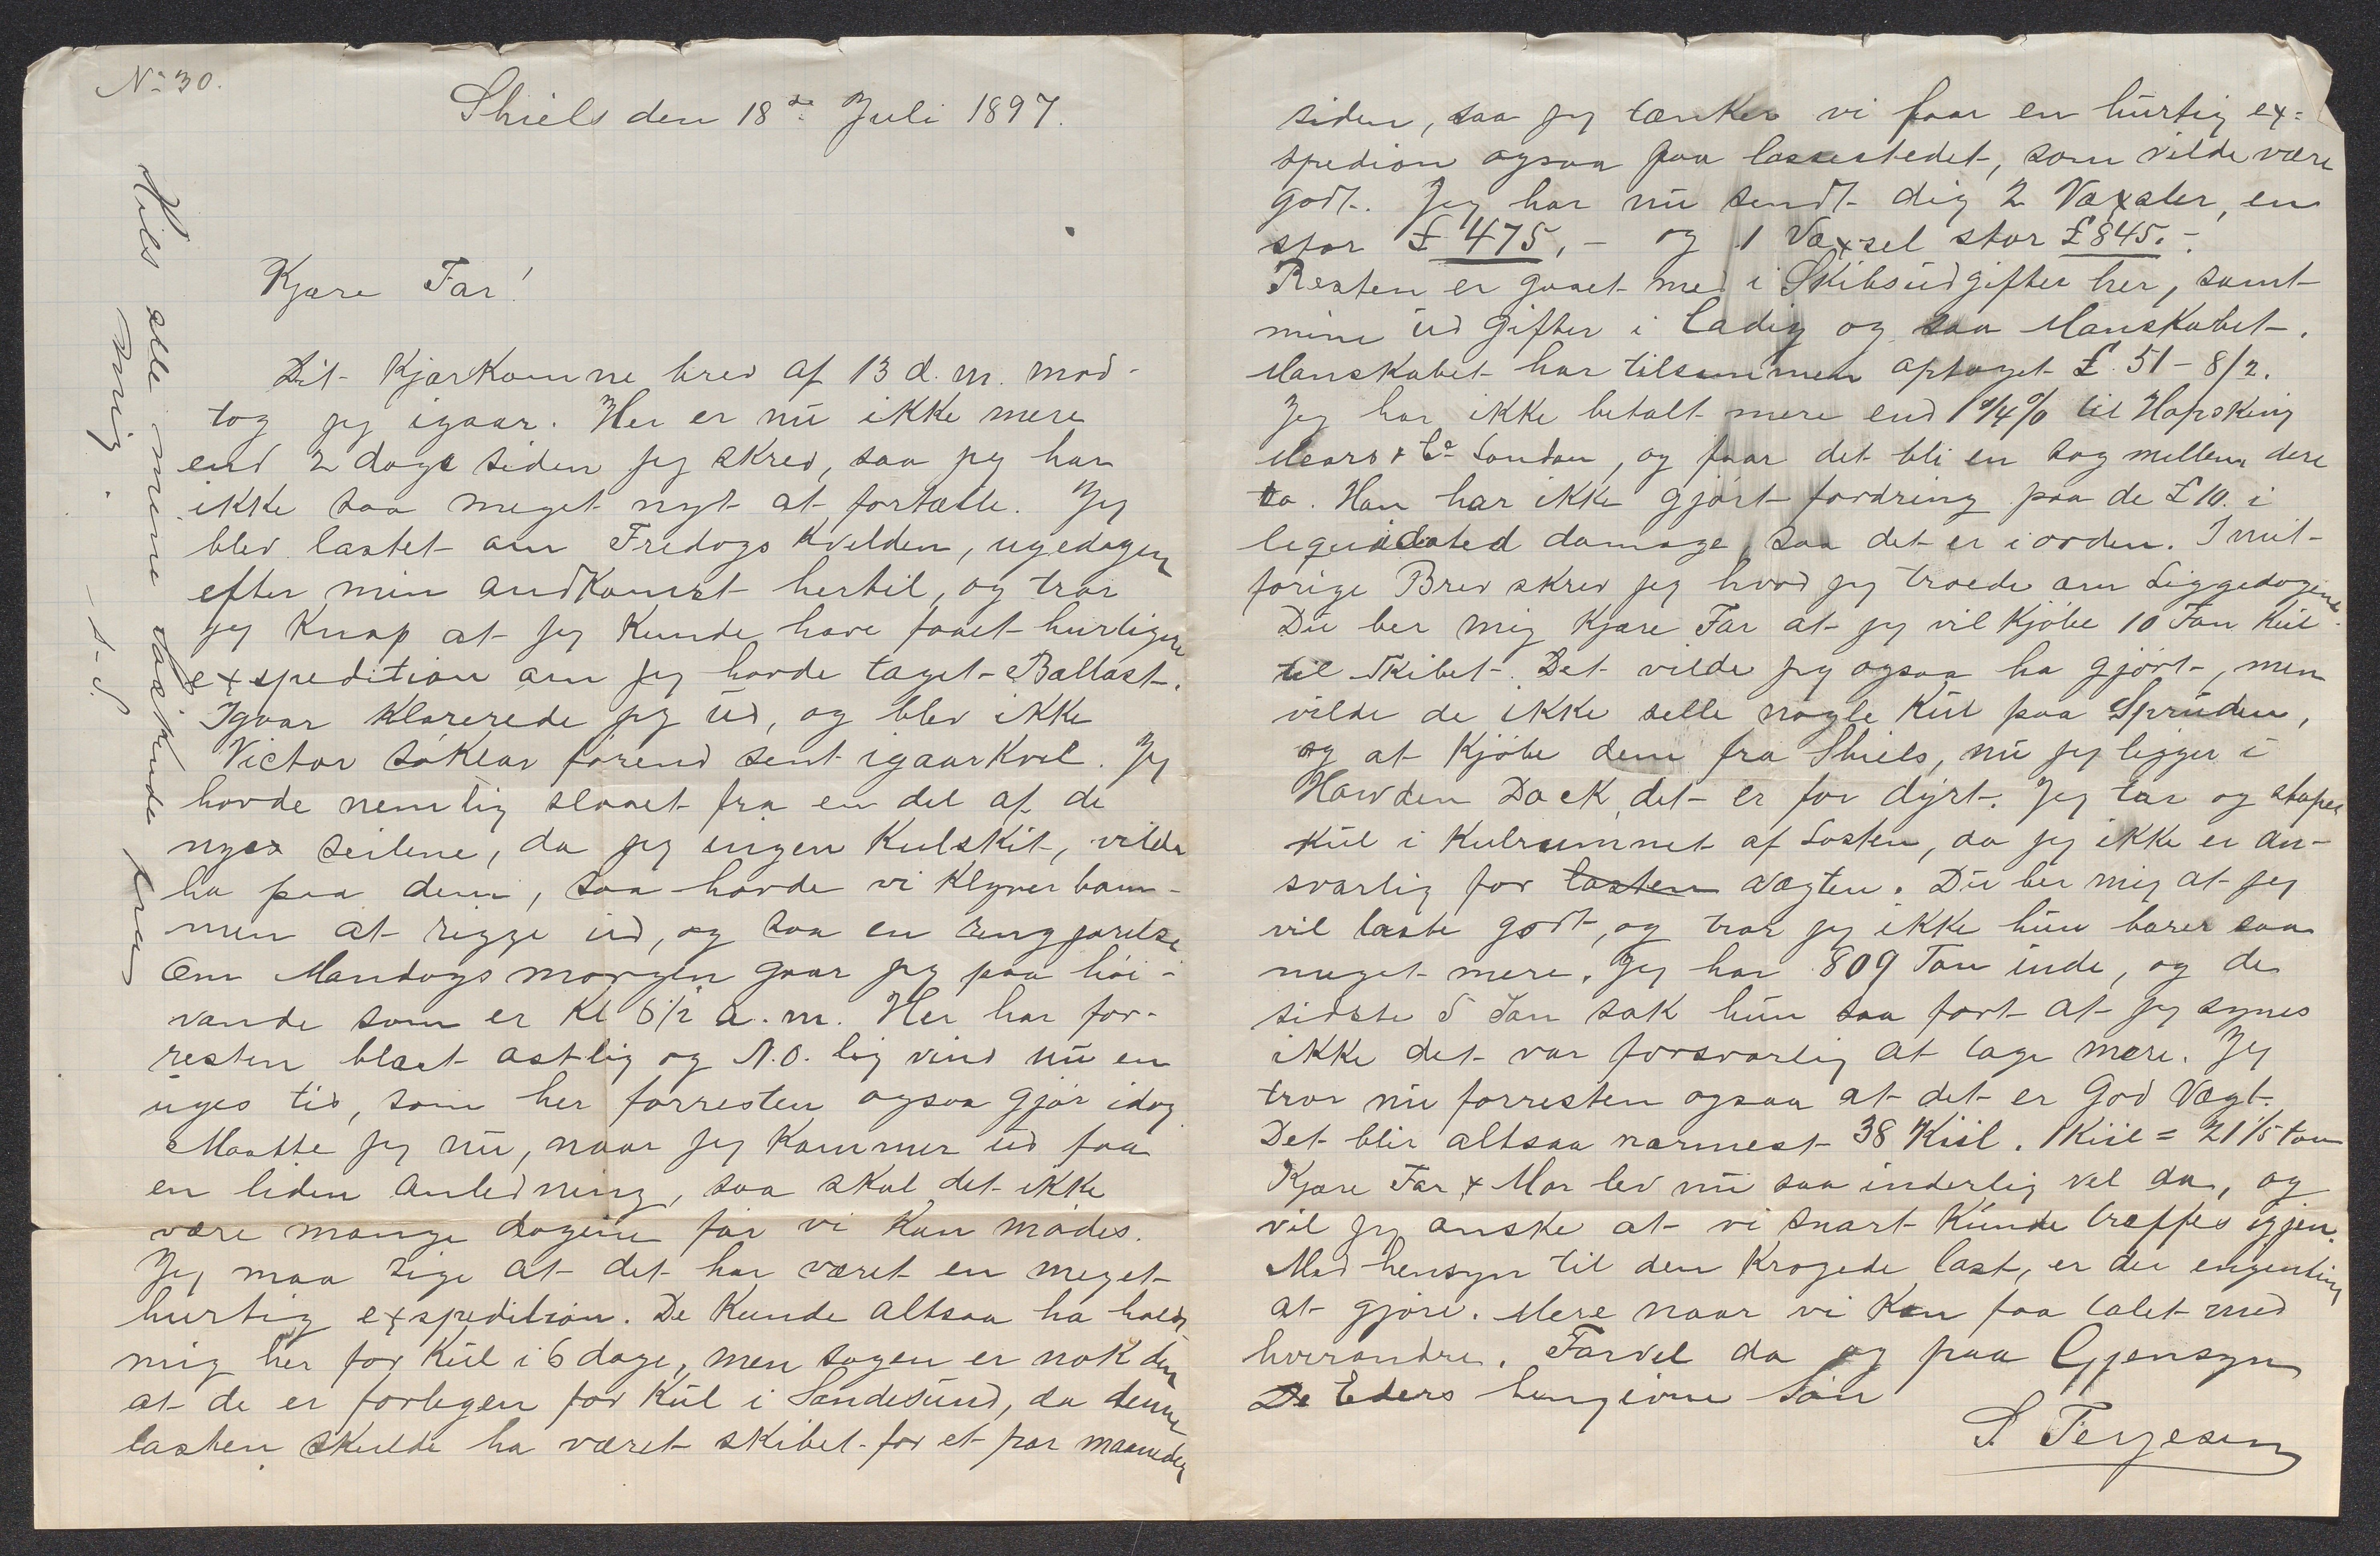 No 30.
Shiels den 18de Juli 1897.
Kjære Far!
Dit Kjærkomne brev af 13 d. m. mod-
tog jeg igaar. Her er nu ikke mere
end 2 dage siden jeg skrev, saa jeg har
ikke saa meget nyt at fortælle. Jeg
blev lastet om Fredags Kvelden, ugedagen
efter min andkomst hertil, og tror
jeg Knap at jeg Kunde have faaet hurtigere
expedition om jeg havde taget Ballast.
Igaar Klarerede jeg ud, og blev ikke
Victor søklar førend sent igaarkvel. Jeg
havde nemlig slaaet fra en del af de
nyes seilene, da jeg ingen Kulskit, vilde
ha paa dem, saa havde vi Klyverbom-
men at rigge ud, og saa en rengjørelse
Om Mandags morgen gaar jeg paa høi-
vande som er Kl 6 1/2 a. m. Her har for-
resten blæst ostlig og N.O. lig vind nu en
uges tid, som her forresten ogsaa gjør idag
Maatte jeg nu, naar jeg Kommer ud faa
en liden anledning, saa skal det ikke
være mange dagene før vi Kan mødes.
Jeg maa sige at det har været en meget
hurtig expedition. De Kunde altsaa ha holdt
mig her for Kul i 6 dage, men sagen er nok den
at de er forlegen for Kul i Sandesund, da denne
lasten skulde ha været skibet for et par maaneder
Hils alle mine Søskende fra
mig.
- D. S.
siden, saa jeg tænker vi faar en hurtig ex-
spedion ogsaa paa lossestedet, som vilde være
godt. Jeg har nu sendt dig 2 Vaxsler, en
stor £ 475,- og 1 Vaxsel stor £845.-
Resten er gaaet med i Skibsudgifter her, samt
mine udgifter i Cadix og saa Manskabet.
Manskabet har tilsammen optaget £ 51 - 8/2.
Jeg har ikke betalt mere end 1 1/4 % til Hapsking
Mears & Co London, og faar det bli en sag mellem dere
to. Han har ikke gjørt fordring paa de £ 10. i
liquidated damage, saa det er i orden. I mit
forige Brev skrev jeg hvad jeg troede om Liggedagene
Du ber mig Kjære Far at jeg vil Kjøbe 10 Ton Kul
til Skibet. Det vilde jeg ogsaa ha gjørt, men
vilde de ikke selle nogle Kul paa Spruden,
og at Kjøbe dem fra Shiels, nu jeg ligger i
Hawden Dock, det er for dyrt. Jeg tar og stoper
Kul i Kulrummet af Lasten, da jeg ikke er an-
svarlig for lasten Vægten. Du ber mig at jeg
vil laste godt, og tror jeg ikke hun bærer saa
meget mere. Jeg har 809 Ton inde, og de
sidste 5 Ton sak hun saa fort at jeg synes
ikke det var forsvarlig at tage mere. Jeg
tror nu forresten ogsaa at det er God Vægt.
Det blir altsaa nærmest 38 Kiil. 1 Kiil = 21 1/5 ton
Kjære Far & Mor lev nu saa inderlig vel da, og
vil jeg ønske at vi snart Kunde træffes igjen.
Med hensyn til den Krogede last, er der ingenting
at gjøre. Mere naar vi Kan faa talet med
hverandre. Farvel da og paa Gjensyn
De Eders hengivne Søn
S. Terjesen